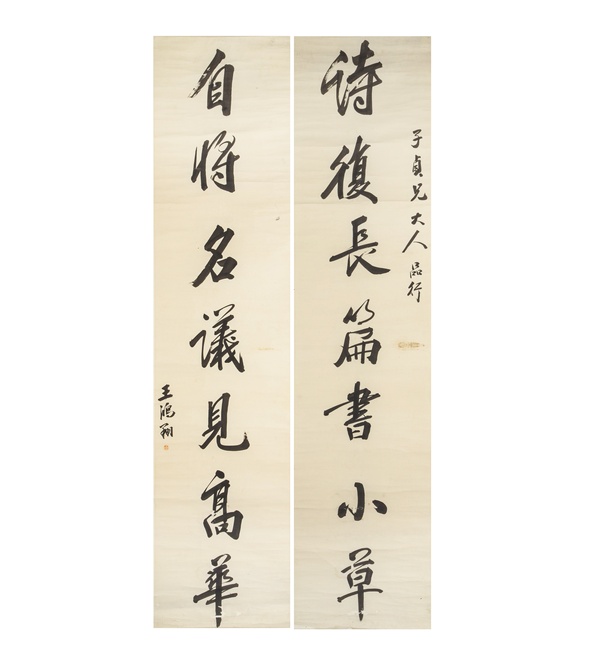 子貞兄大人品行
詩復長篇書小草
自將名議見高華
王鴻翔